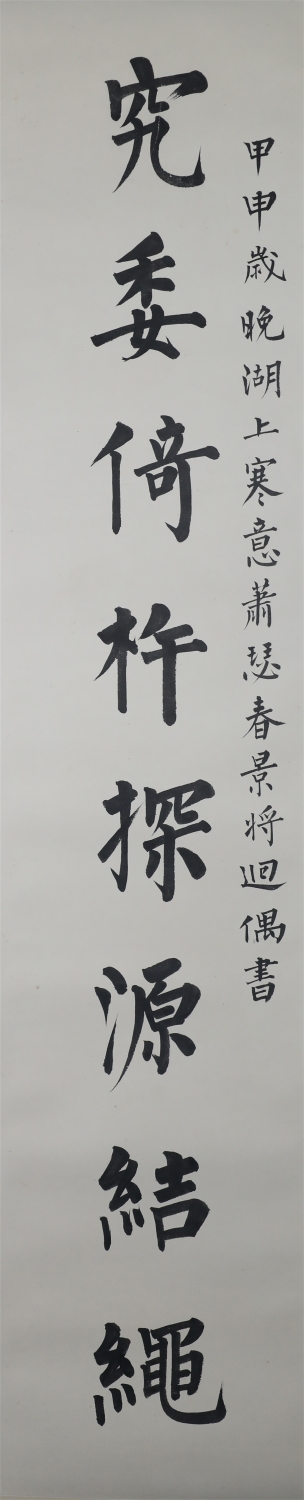 甲申歲晚湖上寒意蕭瑟春景将迴偶書
究委倚杵探源結繩